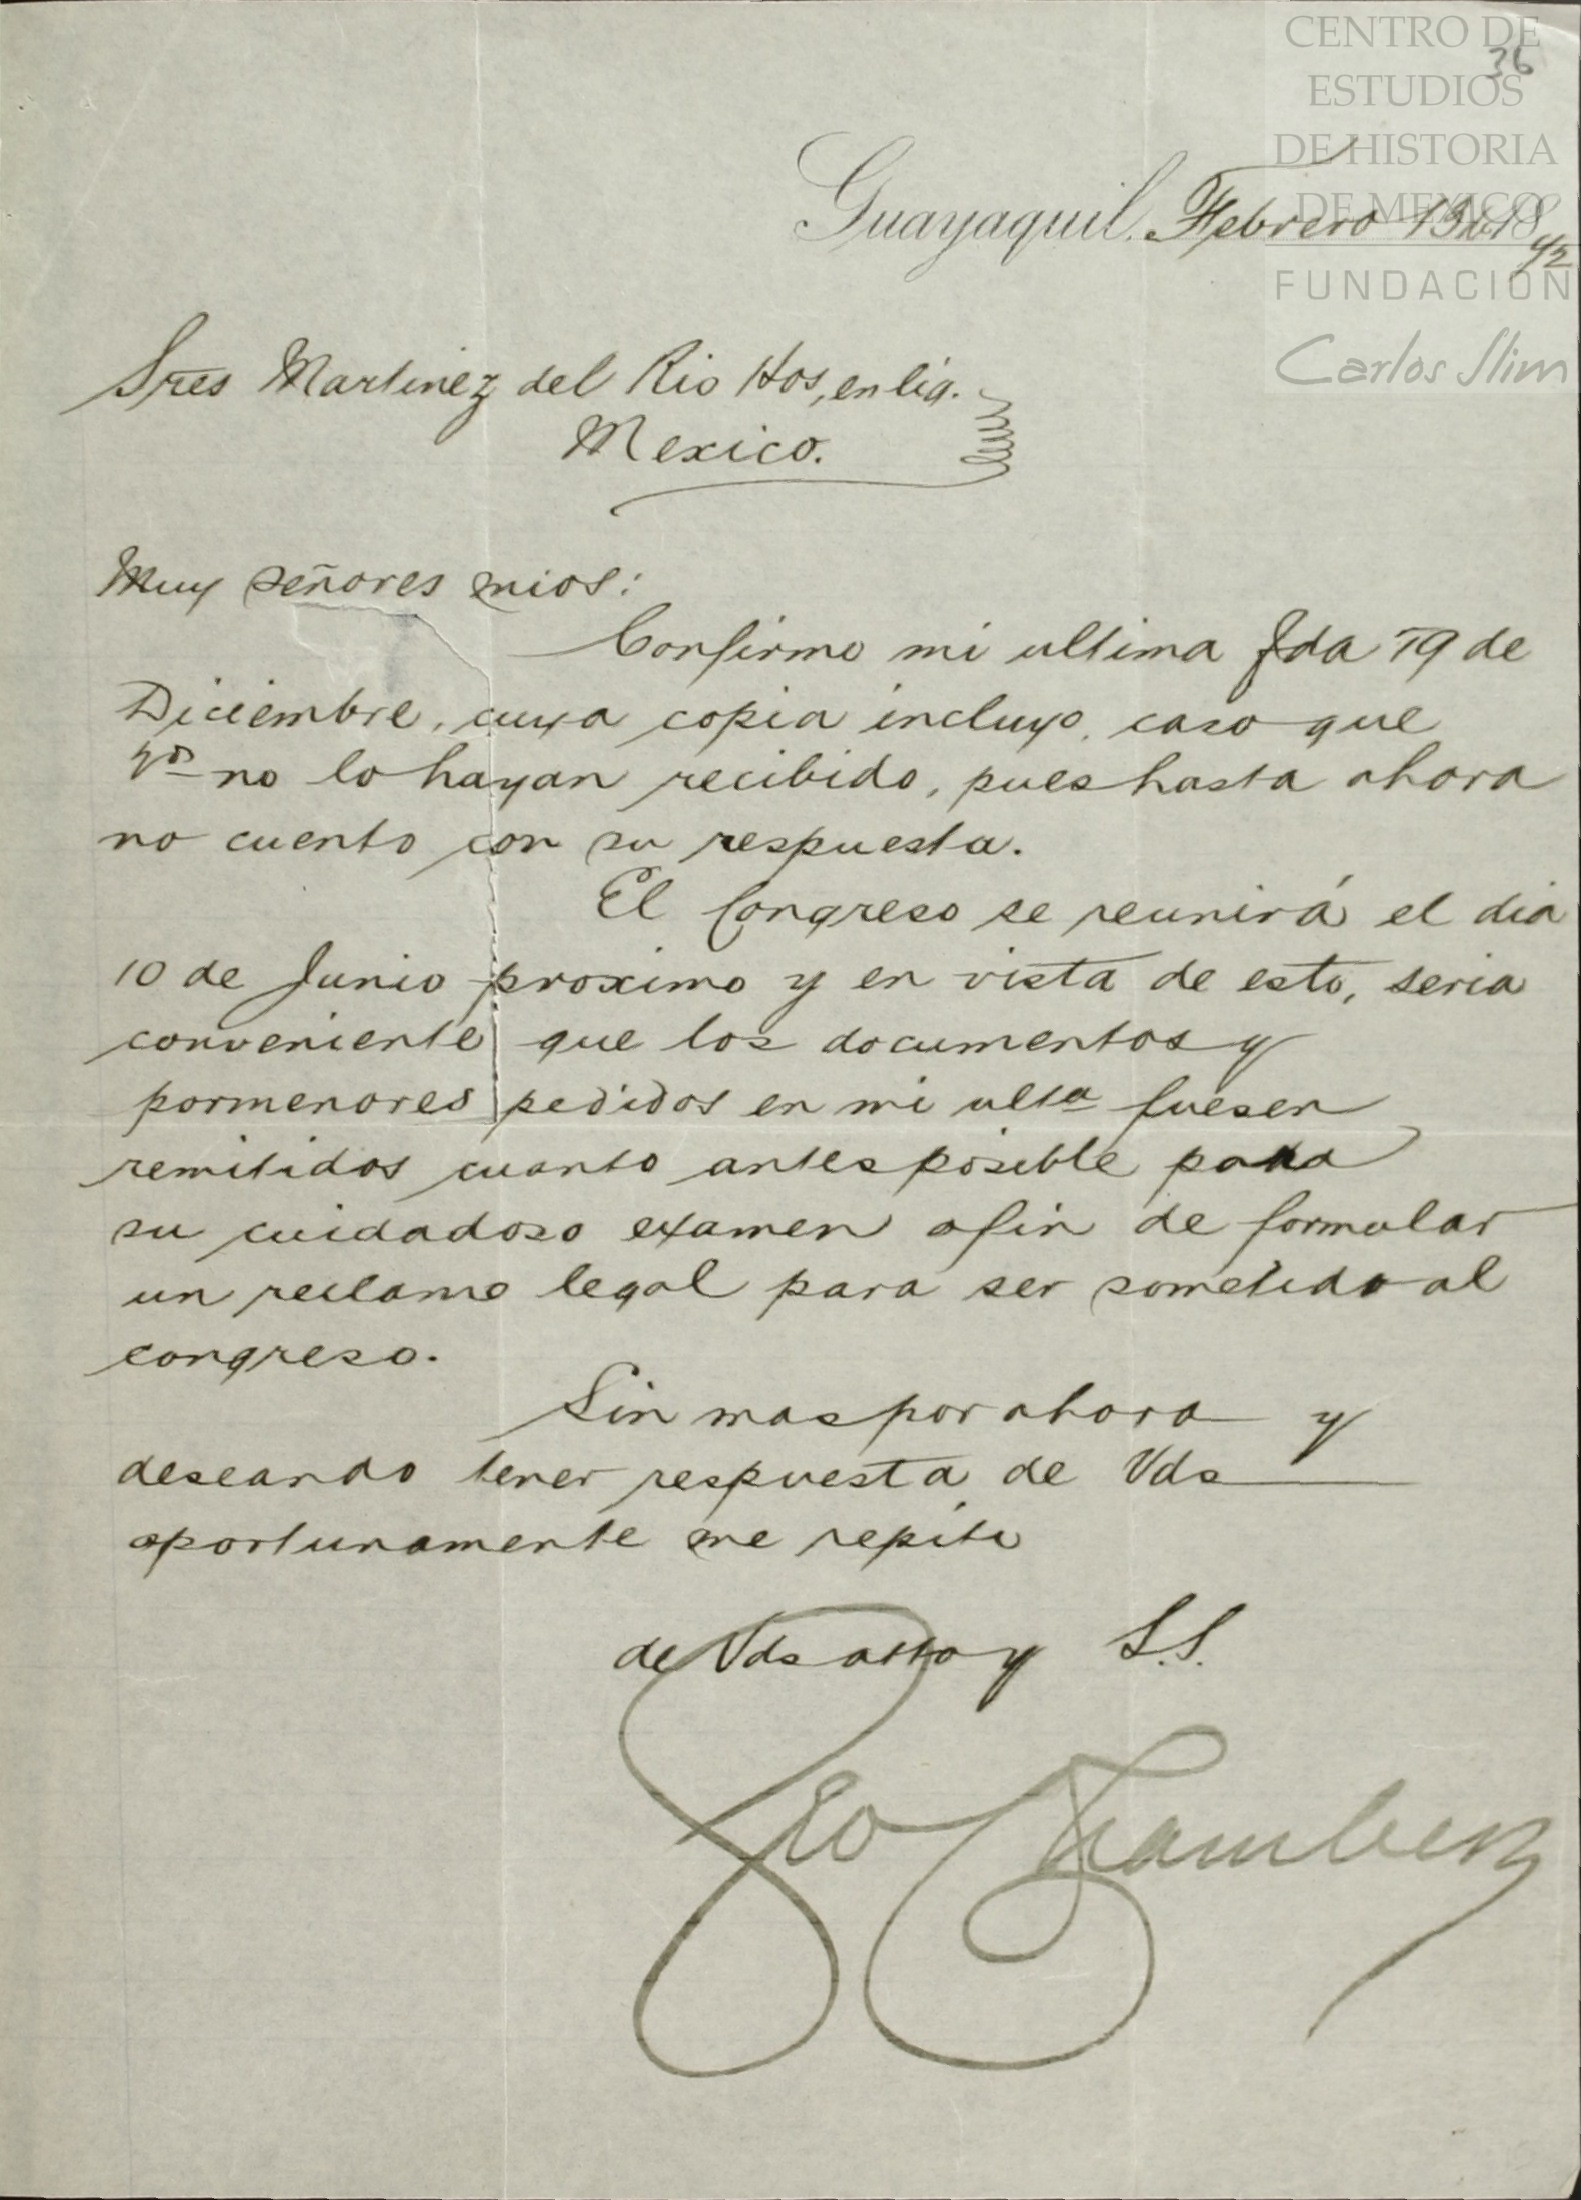 CENTRO DE
36
ESTUDIOS
DE HISTORIA
DE MEXICO
Guayaquil, Febrero 13 de 18 92
FUNDACIÓN
Carlos Slim
Sres Martinez del Rio Hos, en liq.
Mexico.
Muy señores mios:
Confirmo mi ultima fda 19 de
Diciembre, cuya copia incluyo, caso que
Vds no lo hayan recibido, pues hasta ahora
no cuento con su respuesta.
El Congreso se reunirá el dia
10 de Junio proximo y en vista de esto, seria
conveniente que los documentos y
pormenores pedidos en mi ulta fuesen
remitidos cuanto antes posible para
su cuidadoso examen afin de formular
un reclamo legal para ser sometido al
congreso.
Sin mas por ahora y
deseando tener respuesta de Vds
oportunamente me repito
de Vds atto y S.S.
Geo Chambers